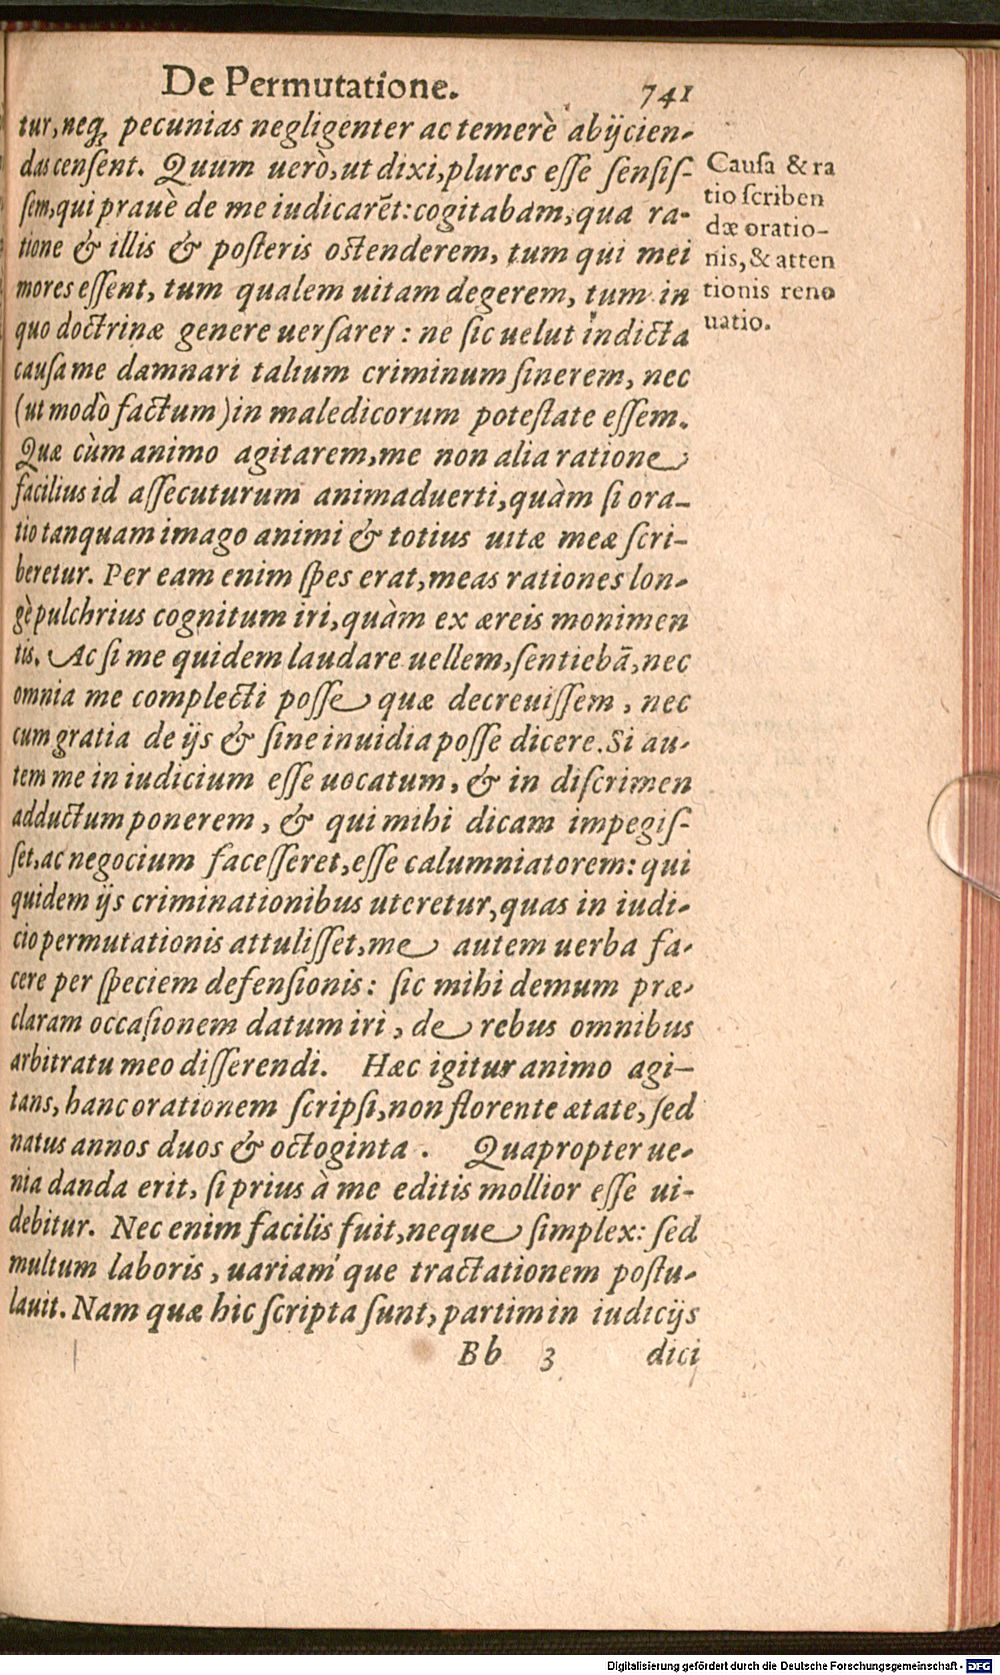 De Permutatione. 741
tur, neq; pecunias negligenter ac temerè abijcien-
das censent. Quum uerò, ut dixi, plures esse sensis-
sem, qui prauè de me iudicarēt: cogitabam, qua ra-
tione & illis & posteris ostenderem, tum qui mei
mores essent, tum qualem uitam degerem, tum in
quo doctrinæ genere uersarer: ne sic uelut indicta
causa me damnari talium criminum sinerem, nec
(ut modò factum) in maledicorum potestate essem.
Quæ cùm animo agitarem, me non alia ratione
facilius id assecuturum animaduerti, quàm si ora-
tio tanquam imago animi & totius uitæ meæ scri-
beretur. Per eam enim spes erat, meas rationes lon-
gè pulchrius cognitum iri, quàm ex æreis monimen
tis. Ac si me quidem laudare uellem, sentiebā, nec
omnia me complecti posse quæ decreuissem, nec
cum gratia de ijs & sine inuidia posse dicere. Si au-
tem me in iudicium esse uocatum, & in discrimen
adductum ponerem, & qui mihi dicam impegis-
set, ac negocium facesseret, esse calumniatorem: qui
quidem ijs criminationibus uteretur, quas in iudi-
cio permutationis attulisset, me autem uerba fa-
cere per speciem defensionis: sic mihi demum præ-
claram occasionem datum iri, de rebus omnibus
arbitratu meo disserendi. Hæc igitur animo agi-
tans, hanc orationem scripsi, non florente ætate, sed
natus annos duos & octoginta. Quapropter ue-
nia danda erit, si prius à me editis mollior esse ui-
debitur. Nec enim facilis fuit, neque simplex: sed
multum laboris, uariam que tractationem postu-
lauit. Nam quæ hic scripta sunt, partim in iudicijs
Bb 3 dici
Causa & ra
tio scriben
dæ oratio-
nis, & atten
tionis reno
uatio.
Digitalisierung gefördert durch die Deutsche Forschungsgemeinschaft - DFG